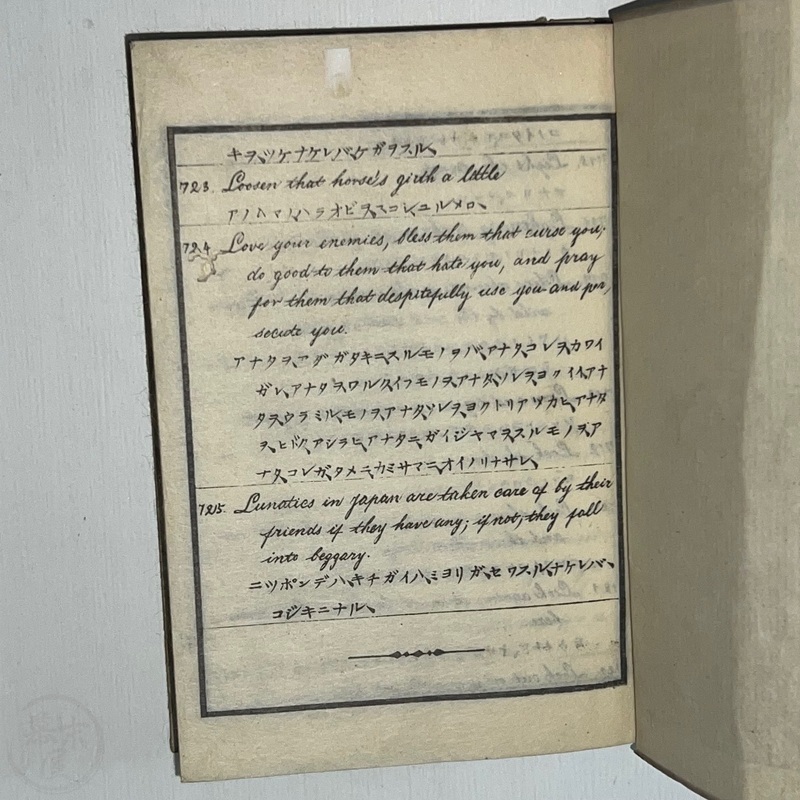 キヲ、ツケナケレバ、ケガヲスル、
723. Loosen that horse's girth a little
アノムマノハラオビヲ、スコシ、ユルメロ、
724 Love your enemies, bless them that curse you,
do good to them that hate you, and pray
for them that despitefully use you and per,
secute you.
アナタヲ、アダガタキニスルモノヲバ、アナタ、コレヲ、カワイ
ガレ、アナタヲ、ワルク、イフモノヲ、アナタ、ソレヲ、ヨクイイ、アナ
タヲ、ウラミル、モノヲ、アナタ、ソレヲ、ヨクトリアツカヒ、アナタ
ヲ、ヒドク、アシラヒ、アナタニ、ガイジヤマヲ、スルモノヲ、ア
ナタ、コレガ、タメニ、カミサマニ、オイノリナサレ、
725. Lunatics in Japan are taken care of by their
friends if they have any; if not, they fall
into beggary.
ニツポンデハ、キチガイハ、ミヨリガ、セワスル、ナケレバ、
コジキニナル、